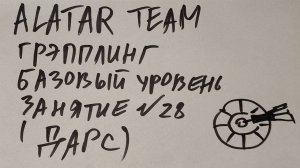 ALATAR TEAM
ГРЭППЛИНГ
БАЗОВЫЙ УРОВЕНЬ
ЗАНЯТИЕ №28
(ДАРС)